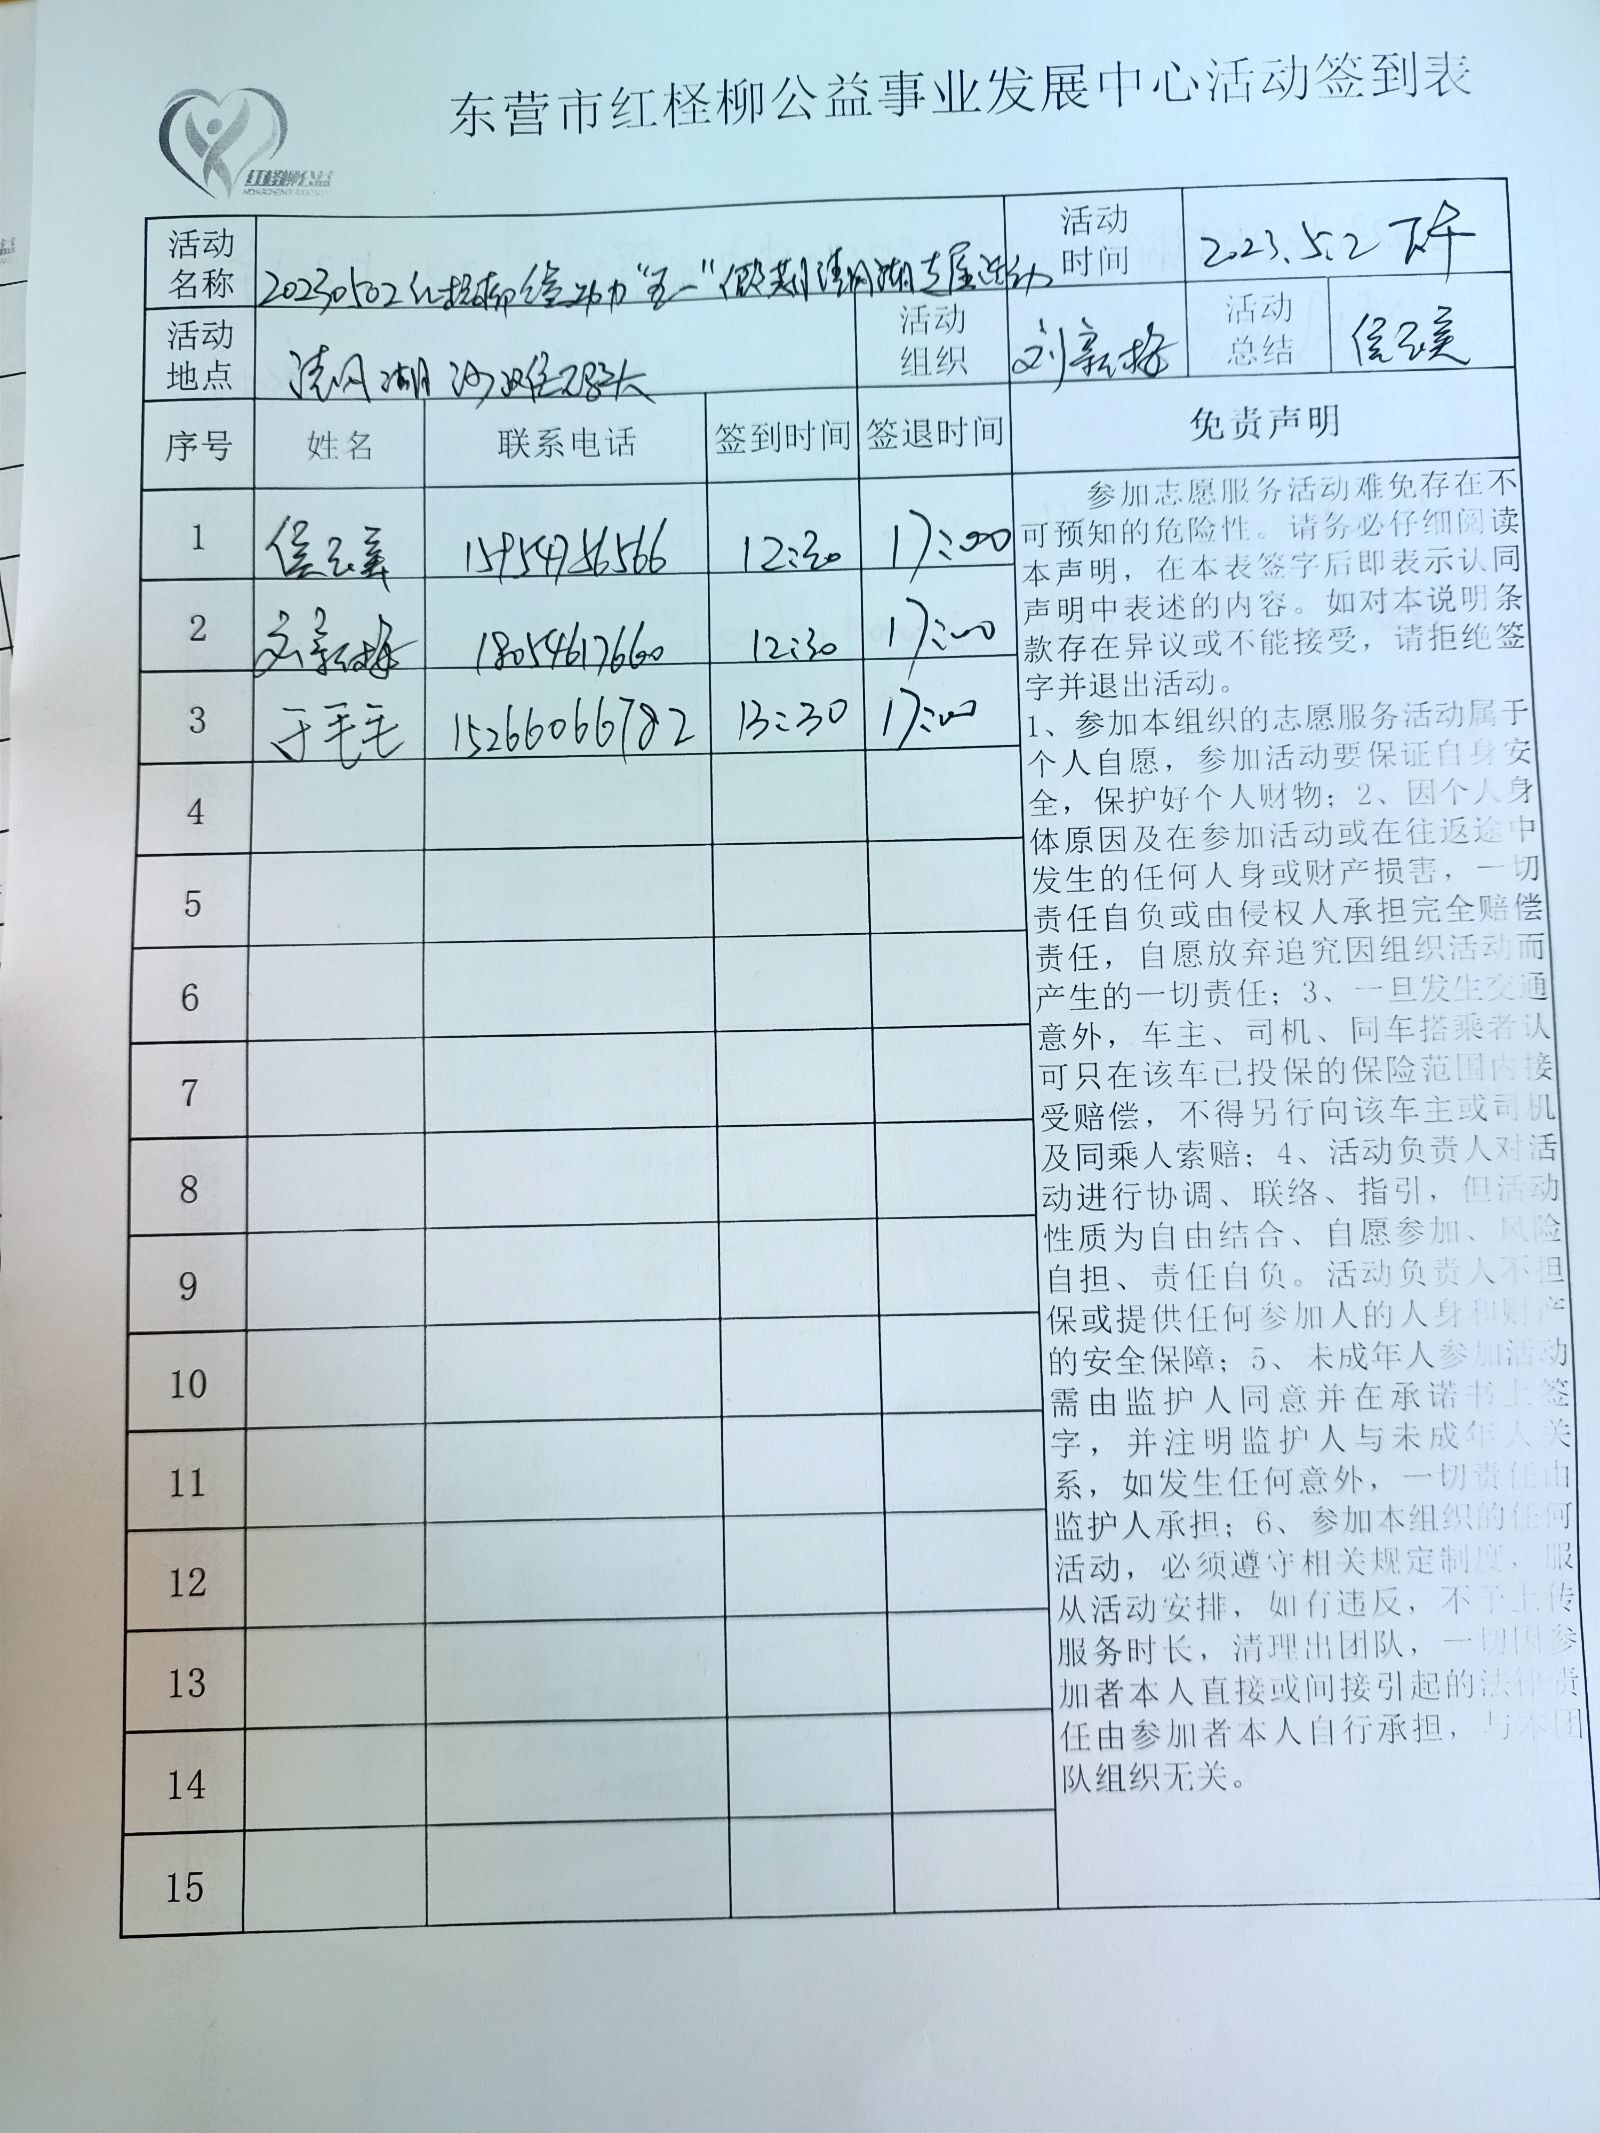 东营市红柽柳公益事业发展中心活动签到表
红柽柳公益
活动名称
20230502红柽柳 "五一" 清风湖 活动
活动时间
2023.5.2 下午
活动地点
清风湖
活动组织
刘新梅
活动总结
侯
序号 姓名 联系电话 签到时间 签退时间 免责声明
1 侯 15954756566 12:30 17:00
2 刘新梅 18054617660 12:30 17:00
3 于毛毛 15266066782 13:30 17:00
4
5
6
7
8
9
10
11
12
13
14
15
参加志愿服务活动难免存在不
可预知的危险性。请务必仔细阅读
本声明，在本表签字后即表示认同
声明中表述的内容。如对本说明条
款存在异议或不能接受，请拒绝签
字并退出活动。
1、参加本组织的志愿服务活动属于
个人自愿，参加活动要保证自身安
全，保护好个人财物；2、因个人身
体原因及在参加活动或在往返途中
发生的任何人身或财产损害，一切
责任自负或由侵权人承担完全赔偿
责任，自愿放弃追究因组织活动而
产生的一切责任；3、一旦发生交通
意外，车主、司机、同车搭乘者认
可只在该车已投保的保险范围内接
受赔偿，不得另行向该车主或司机
及同乘人索赔；4、活动负责人对活
动进行协调、联络、指引，但活动
性质为自由结合、自愿参加、风险
自担、责任自负。活动负责人不担
保或提供任何参加人的人身和财产
的安全保障；5、未成年人参加活动
需由监护人同意并在承诺书上签
字，并注明监护人与未成年人关
系，如发生任何意外，一切责任由
监护人承担；6、参加本组织的任何
活动，必须遵守相关规定制度，服
从活动安排，如有违反，不予上传
服务时长，清理出团队，一切因参
加者本人直接或间接引起的法律责
任由参加者本人自行承担，与本团
队组织无关。